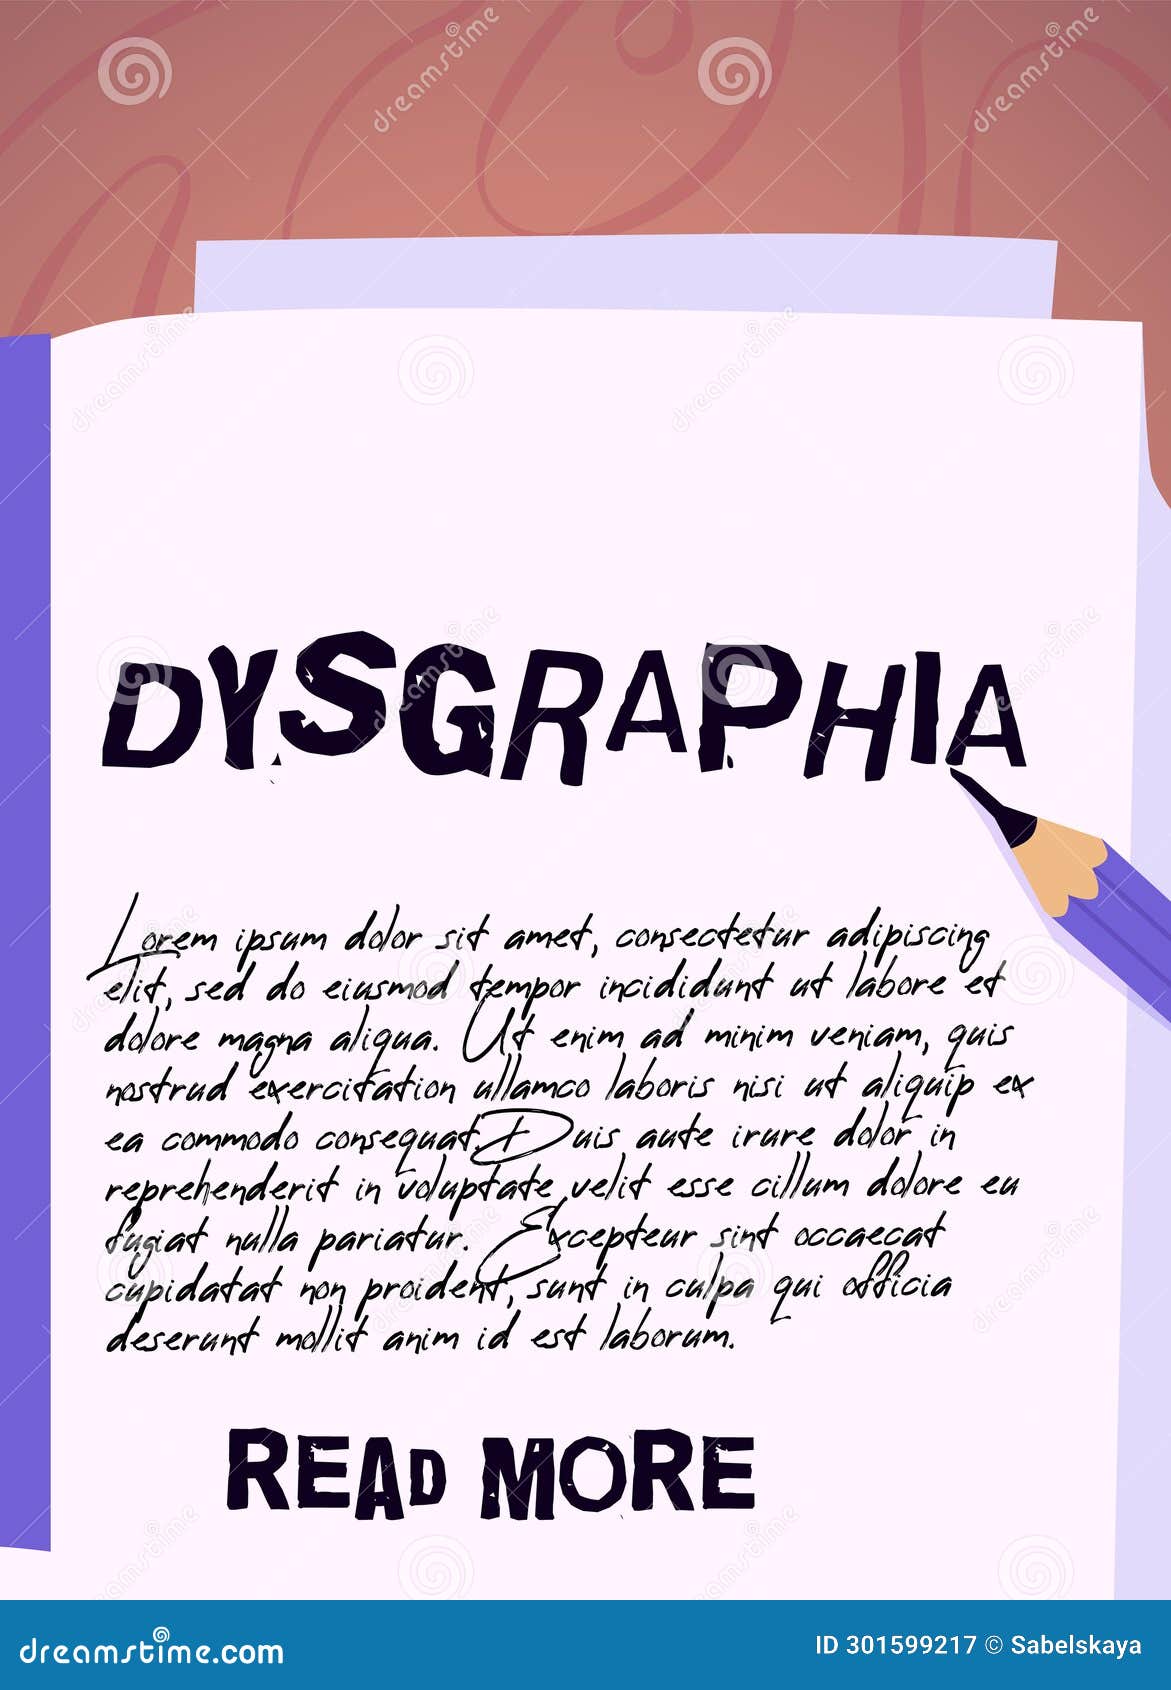 DYSGRAPHIA
Lorem ipsum dolor sit amet, consectetur adipiscing
elit, sed do eiusmod tempor incididunt ut labore et
dolore magna aliqua. Ut enim ad minim veniam, quis
nostrud exercitation ullamco laboris nisi ut aliquip ex
ea commodo consequat. Duis aute irure dolor in
reprehenderit in voluptate velit esse cillum dolore eu
fugiat nulla pariatur. Excepteur sint occaecat
cupidatat non proident, sunt in culpa qui officia
deserunt mollit anim id est laborum.
READ MORE
dreamstime.com
ID 301599217 © Sabelskaya